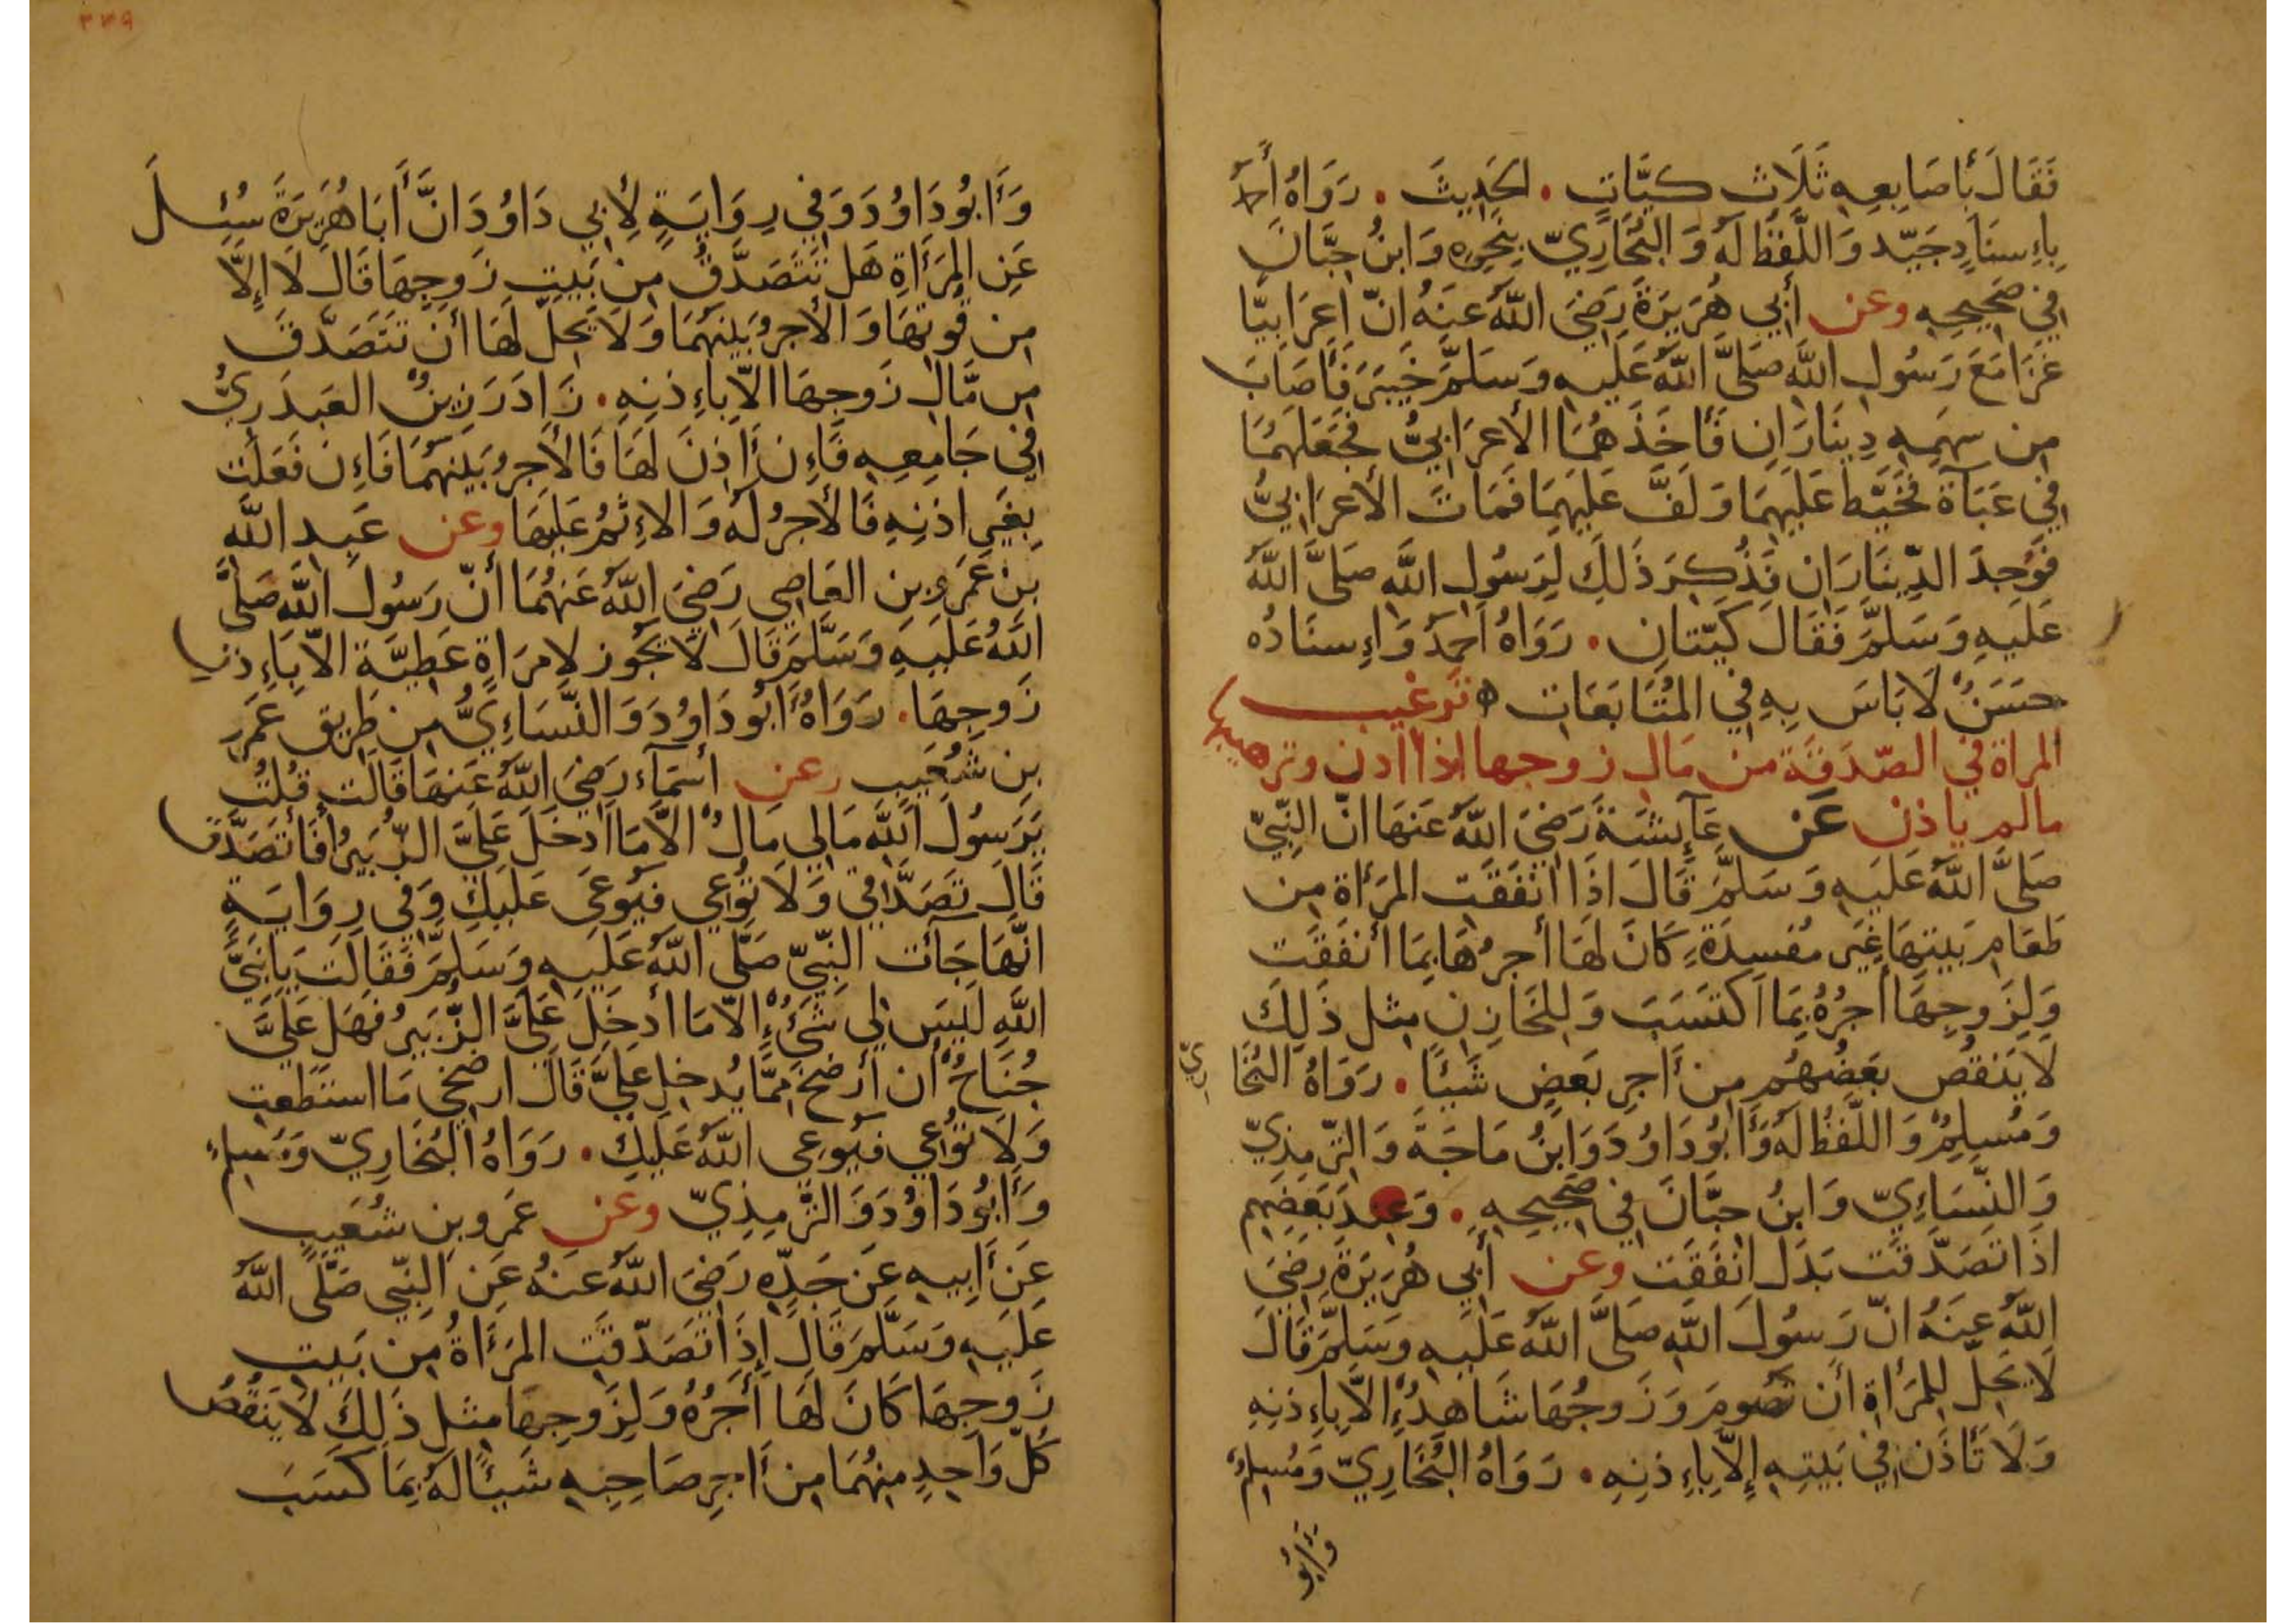 فَقَالَ بِأَصَابِعِهِ ثَلَاثَ كَيَّاتٍ . الحَدِيثَ . رَوَاهُ أَحمَدُ
بِإِسنَادٍ جَيِّد وَاللَّفظُ لَهُ وَالبُخَارِيّ بِنَحوِهِ وَابنُ حِبَّانَ
فِي صَحِيحِهِ وعن أَبِي هُرَيرَةَ رَضِيَ اللَّهُ عَنهُ انّ اَعرَابِيًّا
غَزَا مَعَ رَسُولِ اللَّهِ صَلَّى اللَّهُ عَلَيهِ وَسَلَّمَ خَيبَرَ فَأَصَابَ
مِن سَهمِهِ دِينَارَانِ فَأَخَذَهُمَا الأَعرَابِيُّ فَجَعَلَهُمَا
فِي عَبَآءَة فَخَيَّطَ عَلَيهِمَا وَلَفَّ عَلَيهِمَا فَمَاتَ الأَعرَابِيُّ
فَوُجِدَ الدِّينَارَانِ فَذُكِرَ ذَلِكَ لِرَسُولِ اللَّهِ صَلَّى اللَّهُ
عَلَيهِ وَسَلَّمَ فَقَالَ كَيَّتَانِ . رَوَاهُ اَحمَدُ وَإِسنَادُه
حَسَنٌ لَا بَاسَ بِهِ فِي المُتَابَعَاتِ ه تَرغيب
المراة في الصّدَقَة من مَال زوجها اذا اذن وترهيبها
مالم ياذن عَن عَآئِشَةَ رَضِيَ اللَّهُ عَنهَا انّ النَّبِيّ
صَلَّى اللَّهُ عَلَيهِ وَسَلَّمَ قَالَ اذَا انفَقَتِ المَرأَة مِن
طَعَامِ بَيتِهَا غَيرَ مُفسِدَةٍ كَانَ لَهَا أَجرُهَا بِمَا أَنفَقَت
وَلِزَوجِهَا أَجرُهُ بِمَا اَكتَسَبَ وَلِلخَازِنِ مِثل ذَلِكَ
لَا يَنقُص بَعضُهُم مِن أَجرِ بَعضٍ شَيئًا . رَوَاهُ البُخَارِيّ
وَمُسلِمٌ وَاللَّفظُ لَهُ وَأَبُو دَاوُدَ وَابنُ مَاجَةَ وَالتِّرمِذِيّ
وَالنَّسَاءِيّ وَابنُ حِبَّانَ فِي صَحِيحِهِ . وَعِندَ بَعضِهِم
اذَا تَصَدَّقَت بَدَل انفَقَت وعن أَبِي هُرَيرَةَ رَضِيَ
اللَّهُ عَنهُ انّ رَسُولَ اللَّهِ صَلَّى اللَّهُ عَلَيهِ وَسَلَّمَ قَالَ
لَا يَحِلّ لِلمَرأَةِ أَن تَصُومَ وَزَوجُهَا شَاهِدٌ إِلَّا بِإِذنِهِ
وَلَا تَأذَن فِي بَيتِهِ إِلَّا بِإِذنِهِ . رَوَاهُ البُخَارِيّ وَمُسلِمٌ
وَأَبُو
٣٣٩
وَأَبُو دَاوُدَ وَفِي رِوَايَةٍ لِأَبِي دَاوُدَ انَّ أَبَا هُرَيرَةَ سُئِلَ
عَنِ المَرأَةِ هَل تَتَصَدَّقُ مِن بَيتِ زَوجِهَا قَالَ لَا إِلَّا
مِن قُوتِهَا وَالأَجرُ بَينَهُمَا وَلَا يَحِلّ لَهَا أَن تَتَصَدَّقَ
مِن مَّالِ زَوجِهَا الّا بِإِذنِهِ . زَادَ رَزِينٌ العَبدَرِيُّ
فِي جَامِعِهِ فَإِن أَذِنَ لَهَا فَالأَجرُ بَينَهُمَا فَإِن فَعَلَت
بِغَيرِ اذنِهِ فَالأَجرُ لَهُ وَالإِثمُ عَلَيهَا وعن عَبدِ اللَّهِ
بنِ عَمرِو بنِ العَاصِي رَضِيَ اللَّهُ عَنهُمَا أَنّ رَسُولَ اللَّهِ صَلَّى
اللَّهُ عَلَيهِ وَسَلَّمَ قَالَ لَا تَجُوز لِامرَاةٍ عَطِيَّة الّا بِإِذنِ
زَوجِهَا . رَوَاهُ أَبُو دَاوُدَ وَالنَّسَاءِيُّ مِن طَرِيق عَمرِو
بنِ شُعَيب وعن أَسمَآء رَضِيَ اللَّهُ عَنهَا قَالَت قُلتُ
يَرَسُولَ اللَّهِ مَالِي مَالٌ الَّا مَا اَدخَلَ عَلَيَّ الزُّبَيرُ أَفَأَتَصَدَّق
قَالَ تَصَدَّقِي وَلَا تُوعِي فَيُوعَى عَلَيكِ وَفِي رِوَايَةٍ
انَّهَا جَآءَت النَّبِيّ صَلَّى اللَّهُ عَلَيهِ وَسَلَّمَ فَقَالَت يَا نَبِيَّ
اللَّهِ لَيسَ لِي شَيءٌ إِلَّا مَا أَدخَلَ عَلَيَّ الزُّبَيرُ فَهَل عَلَيَّ
جُنَاحٌ أَن أَرضَخَ مِمَّا يُدخِل عَلَيَّ قَالَ ارضَخِي مَا استَطَعتِ
وَلَا تُوعِي فَيُوعِي اللَّهُ عَلَيكِ . رَوَاهُ البُخَارِيّ وَمُسلِمٌ
وَأَبُو دَاوُدَ وَالتِّرمِذِيّ وعن عَمرو بنِ شُعَيبٍ
عَن أَبِيهِ عَن جَدِّهِ رَضِيَ اللَّهُ عَنهُ عَنِ النَّبِي صَلَّى اللَّهُ
عَلَيهِ وَسَلَّمَ قَالَ إِذَا تَصَدَّقَتِ المَرأَةُ مِن بَيتِ
زَوجِهَا كَانَ لَهَا أَجرُهُ وَلِزَوجِهَا مِثل ذَلِكَ لَا يَنقُصُ
كُلّ وَاحِدٍ مِنهُمَا مِن أَجرِ صَاحِبِهِ شَيئًا لَهُ بِمَا كَسَبَ